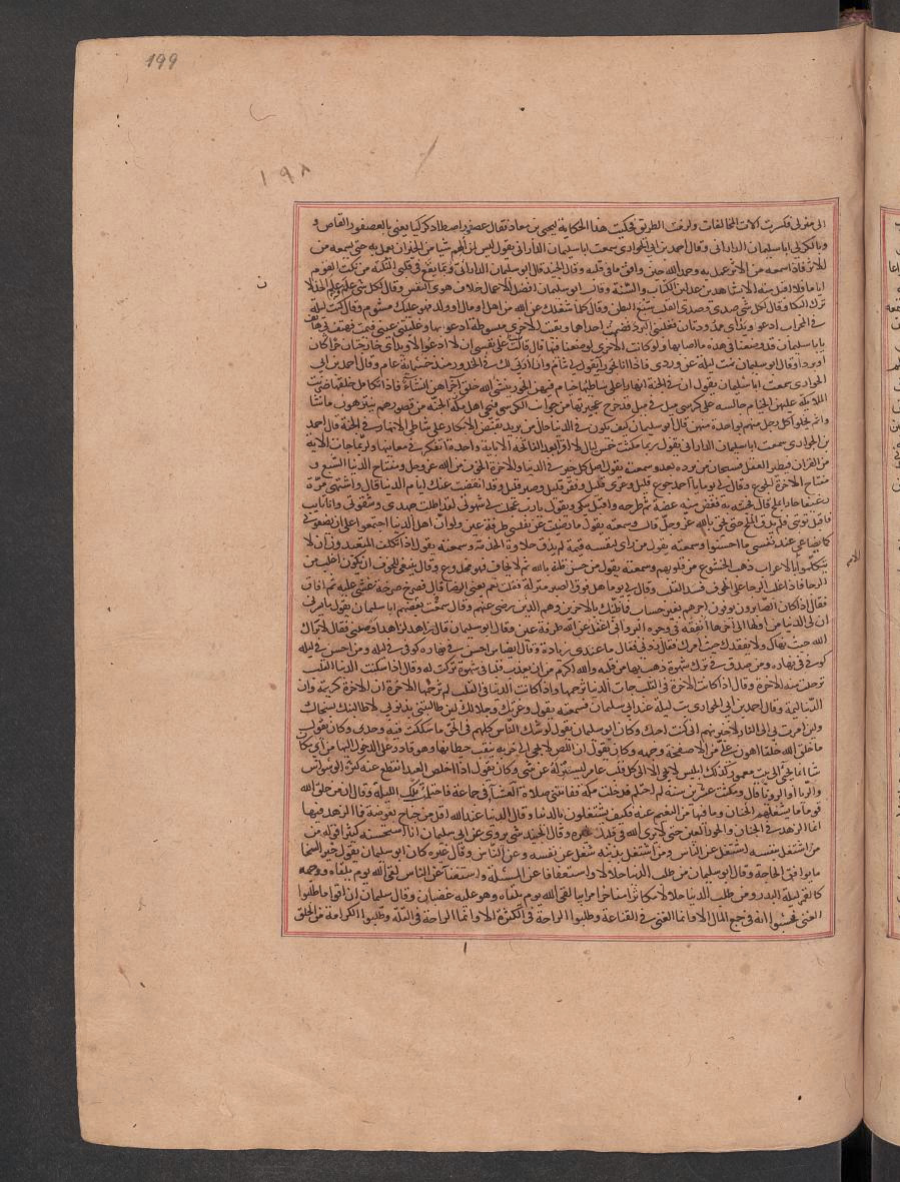 199
١٩٨
الى منزلى فكسرت آلات المخالفات ولزمت الطريق فحكيت هذه الحكاية ليحيى بن معاذ فقال عصفور اصطاد كركيا يعنى بالعصفور القاص و
وبالكركى ابا سليمان الدارانى وقال احمد بن ابى الحوارى سمعت ابا سليمان الدارانى يقول ليس لمن الهم شيا من الخير ان يعمل به حتى يسمعه من
الاثر فاذا سمعه من الاثر عمل به وحمد الله حين وافق ما فى قلبه وقال الجنيد قال ابو سليمان الدارانى ربما يقع فى قلبى النكتة من نكت القوم
اياما فلا اقبل منه الا بشاهدين عدلين الكتاب والسنة وقال ابو سليمان افضل الاعمال خلاف هوى النفس وقال لكل شى علم وعلم الخذلان
ترك البكا وقال لكل شى صدى وصدى القلب شبع البطن وقال كلما شغلك عن الله من اهل ومال وولد فهو عليك مشوم وقال كنت ليلة
فى المحراب ادعو ويداى ممدودتان فغلبنى البرد فضممت احداها وبقيت الاخرى مبسوطة ادعو بها وغلبتنى عينى فنمت فهتف بى هاتف
يا با سليمان قد وضعنا فى هذه ما اصابها ولو كانت الاخرى لوضعنا فيها قال فآليت على نفسى ان لا ادعو الا ويداى خارجتان حرا كان
او بردا وقال ابو سليمان نمت ليلة عن وردى فاذا انا بحورا يقول لى تنام وانا اربى لك فى الخدور منذ خمسماية عام وقال احمد بن ابى
الحوارى سمعت ابا سليمان يقول ان فى الجنة انهارا على شاطئها خيام فيهن الحور ينشى الله خلق احداهن انشاء فاذا تكامل خلقها ضربت
الملايكة عليهن الخيام جالسة على كرسى ميل فى ميل قد خرج عجيزتها من جوانب الكرسى فيجى اهل الجنة من قصورهم يتنزهون ما شا
والله يخلو كل رجل منهم بواحدة منهن قال ابو سليمان كيف يكون فى الدنيا حال من يريد افتضاض الابكار على شاطى الانهار فى الجنة قال احمد
بن الحوارى سمعت ابا سليمان الدارانى يقول ربما مكثت خمس ليال لا اقرا بعد الفاتحة الا باية واحدة اتفكر فى معانيها ولربما جات الاية
من القران فيطير العقل فسبحان من يرده بعد وسمعته يقول اصل كل خير فى الدنيا والاخرة الخوف من الله عز وجل ومفتاح الدنيا الشبع و
مفتاح الاخرة الجوع وقال لى يوما يا احمد جوع قليل وعرى قليل وفقر قليل وصبر قليل وقد انقضت عنك ايام الدنيا قال واشتهى مرة
رغيفا حارا بملح قال فجئته به فعض منه عضة ثم طرحه واقبل يبكى ويقول يا رب عجلت لى شهوتى لقد اطلت جهدى وشقوتى وانا تايب
فاقبل توبتى فلم يذق الملح حتى لحق بالله عز وجل قال وسمعته يقول ما رضيت عن نفسى طرفة عين ولو ان اهل الدنيا اجتمعوا على ان يضعونى
كاتضاعى عند نفسى ما احسنوا وسمعته يقول من راى لنفسه قيمة لم يذق حلاوة الخدمة وسمعته يقول اذا تكلف المتعبدون ان لا
يتكلموا الا بالاعراب ذهب الخشوع من قلوبهم وسمعته يقول من حسن ظنه بالله ثم لا يخاف فهو مخدوع وقال ينبغى للخوف ان يكون اغلب من
الرجا فاذا غلب الرجا على الخوف فسد القلب وقال لى يوما هل فوق الصبر منزلة فقلت نعم يعنى الرضا قال فصرخ صرخة غشى عليه ثم افاق
فقال اذا كان الصابرون يوفون اجرهم بغير حساب فما ظنك بالاخرين وهم الذين رضى عنهم وقال سمعت بعضهم ابا سليمان يقول ما يسرنى
ان لى الدنيا من اولها الى اخرها انفقه فى وجوه البر وانى اغفل عن الله طرفة عين وقال ابو سليمان قال زاهد لزاهد اوصنى فقال لا يراك
الله حيث نهاك ولا يفقدك حيث امرك فقال زدنى فقال ما عندى زيادة وقال ايضا من احسن فى نهاره كوفى فى ليله ومن احسن فى ليله
كوفى فى نهاره ومن صدق فى ترك شهوة ذهب بها من قلبه والله اكرم من ان يعذب قلبا فى شهوة تركت له وقال اذا سكنت الدنيا القلب
ترحلت منه الاخرة وقال اذا كانت الاخرة فى القلب جات الدنيا تزحمها واذا كانت الدنيا فى القلب لم تزحمها الاخرة ان الاخرة كريمة وان
الدنيا لئيمة وقال احمد بن ابى الحوارى بت ليلة عند ابى سليمان فسمعته يقول وعزتك وجلالك لين طالبتنى بذنوبى لاطالبنك بسخاك
ولين امرت بى الى النار لاخبرنهم انى كنت احبك وكان ابو سليمان يقول لو شك الناس كلهم فى الحق ما شككت فيه وحدى وكان يقول
ما خلق الله خلقا اهون على من ابليس
شا انما يجى الى بيت معمور كذلك ابليس لا يجى الا الى كل قلب عامر ليستنزله عن شى وكان يقول اذا اخلص العبد انقطع عنه كثرة الوسواس
والريا او الرويا قال ومكثت عشرين سنة لم احتلم فدخلت مكة ففاتتنى صلاة العشا فى جماعة فاحتلمت تلك الليلة وقال ان من خلق الله
قوما ما يشغلهم الجنان وما فيها من النعيم عنه فكيف يشتغلون بالدنيا وقال الدنيا عند الله اقل من جناح بعوضة فما الزهد فيها
انما الزهد فى الجنان والحور العين حتى لا يرى الله فى قلبك غيره وقال الجنيد شى يروى عن ابى سليمان انا استحسنته كثيرا قوله من
من اشتغل بنفسه اشتغل عن الناس ومن اشتغل بربه شغل عن نفسه وعن الناس وقال غيره كان ابو سليمان يقول خير السخا
ما وافق الحاجة وقال ابو سليمان من طلب الدنيا حلالا واستعفافا عن المسئلة واستغناء عن الناس لقى الله يوم يلقاه ووجهه
كالقمر ليلة البدر ومن طلب الدنيا حلالا مكاثرا مفاخرا مرائيا لقى الله يوم يلقاه وهو عليه غضبان وقال سليمان ان اقواما طلبوا
الغنى فحسبوا انه فى جمع المال الا وانما الغنى فى القناعة وطلبوا الراحة فى الكثرة الا وانما الراحة فى القلة وطلبوا الكرامة من الخلق